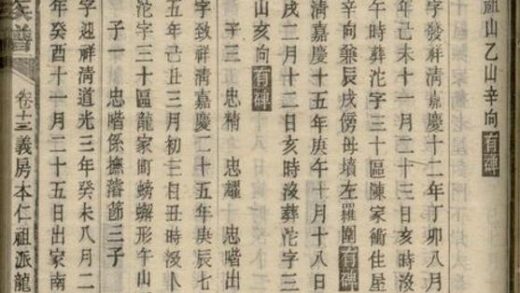 祖山乙山辛向有碑
字發祥清嘉慶十二年丁卯八月
年己未十一月二十三日亥時沒
時葬沱字三十區陳家衝住屋
辛向兼辰戌傍母墳左羅圍有碑
清嘉慶十五年庚午十月十八日
戌二月十二日亥時沒葬沱字三
山亥向有碑
子三 忠精 忠耀 忠喈出
字致祥清嘉慶二十五年庚辰七
五年己丑三月初三日丑時沒卜
沱字三十區龍家町螃蠏形午山
子一 忠喈係撫落節三子
字迎祥清道光三年癸未八月二
年癸酉十一月二十五日出家南
族譜 卷十三 義房本仁祖派龍